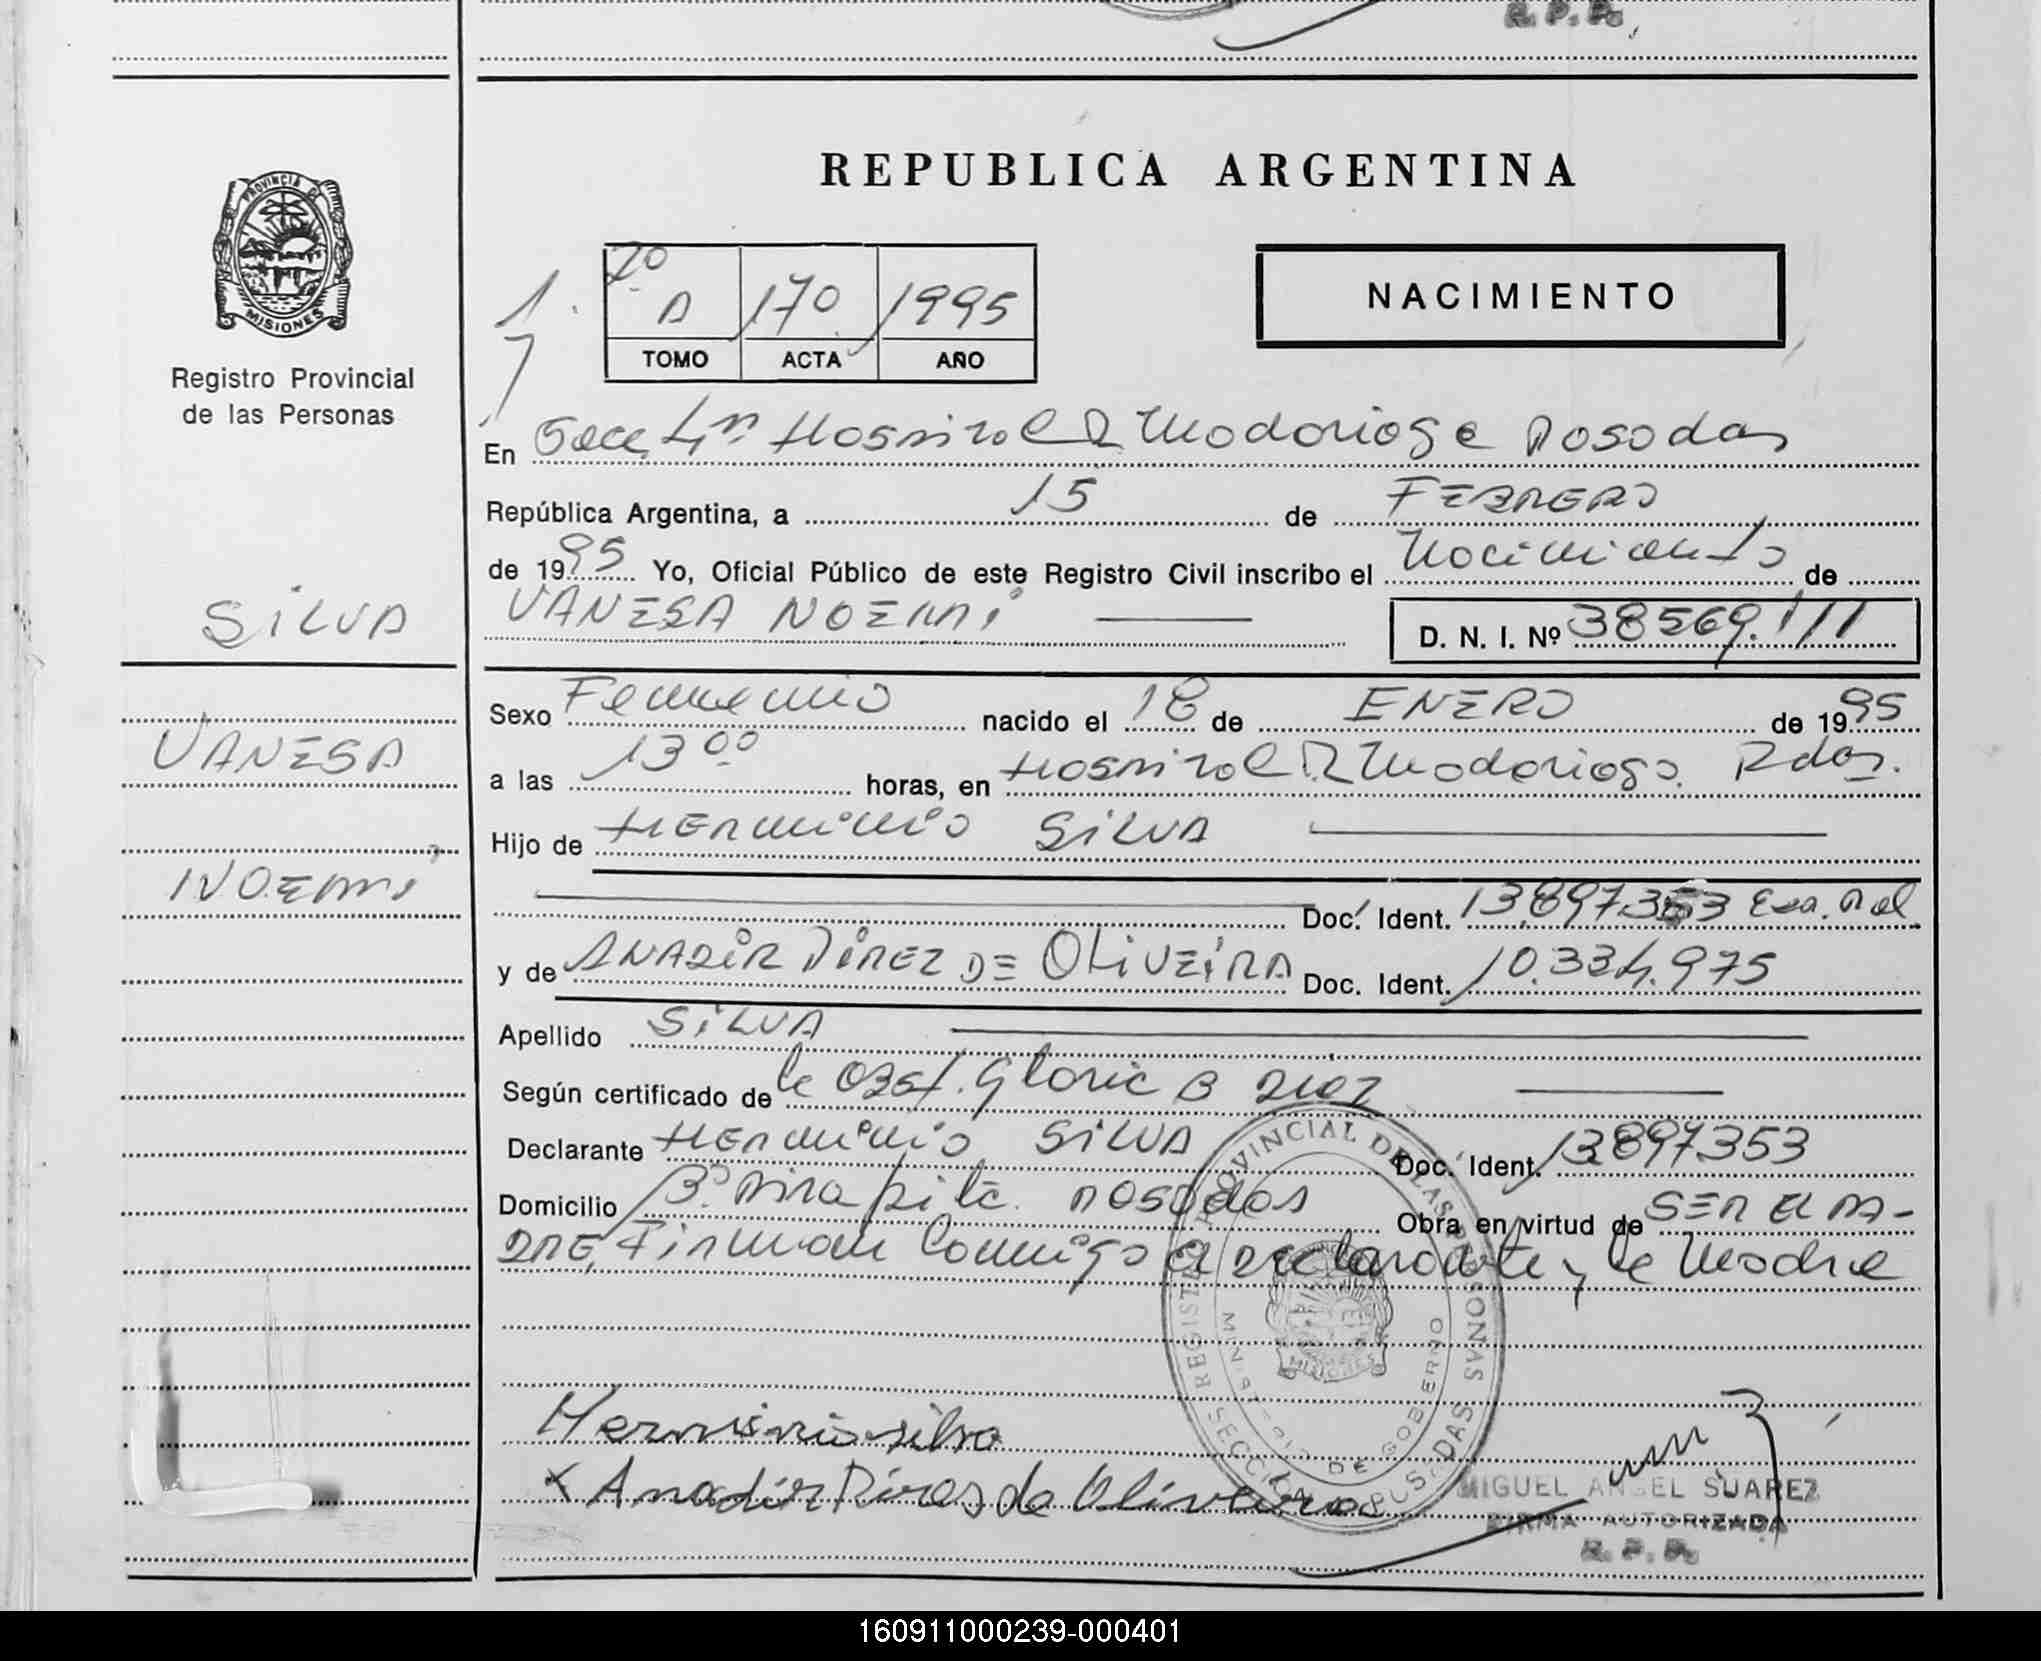 R. P. P.
REPUBLICA ARGENTINA
PROVINCIA DE
MISIONES
Registro Provincial
de las Personas
1º
A 170 1995
TOMO ACTA AÑO
NACIMIENTO
En Secc. 4ta Hospital R Madariaga Posadas
República Argentina, a 15 de FEBRERO
de 1995 Yo, Oficial Público de este Registro Civil inscribo el Nacimiento de
VANESA NOEMI D. N. I. Nº 38569.111
SILVA
VANESA
NOEMI
Sexo Femenino nacido el 18 de ENERO de 1995
a las 13 00 horas, en Hospital R Madariaga. Pdas.
Hijo de HERMINIO SILVA
Doc. Ident. 13.897.353
y de ANADIR PIREZ DE OLIVEIRA Doc. Ident. 10.334.975
Apellido SILVA
Según certificado de la Obst. Gloria B Diez
Declarante HERMINIO SILVA Doc. Ident. 13897353
Domicilio Bº Mira pite. Posadas Obra en virtud de SER EL PA-
DRE, Firman Conmigo el declarante y la Madre
REGISTRO PROVINCIAL DE LAS PERSONAS
MINISTERIO DE GOBIERNO
MISIONES
SECCION POSADAS
Herminio silva
x Anadir Pires de Oliveira
MIGUEL ANGEL SUAREZ
FIRMA AUTORIZADA
R. P. P.
160911000239-000401